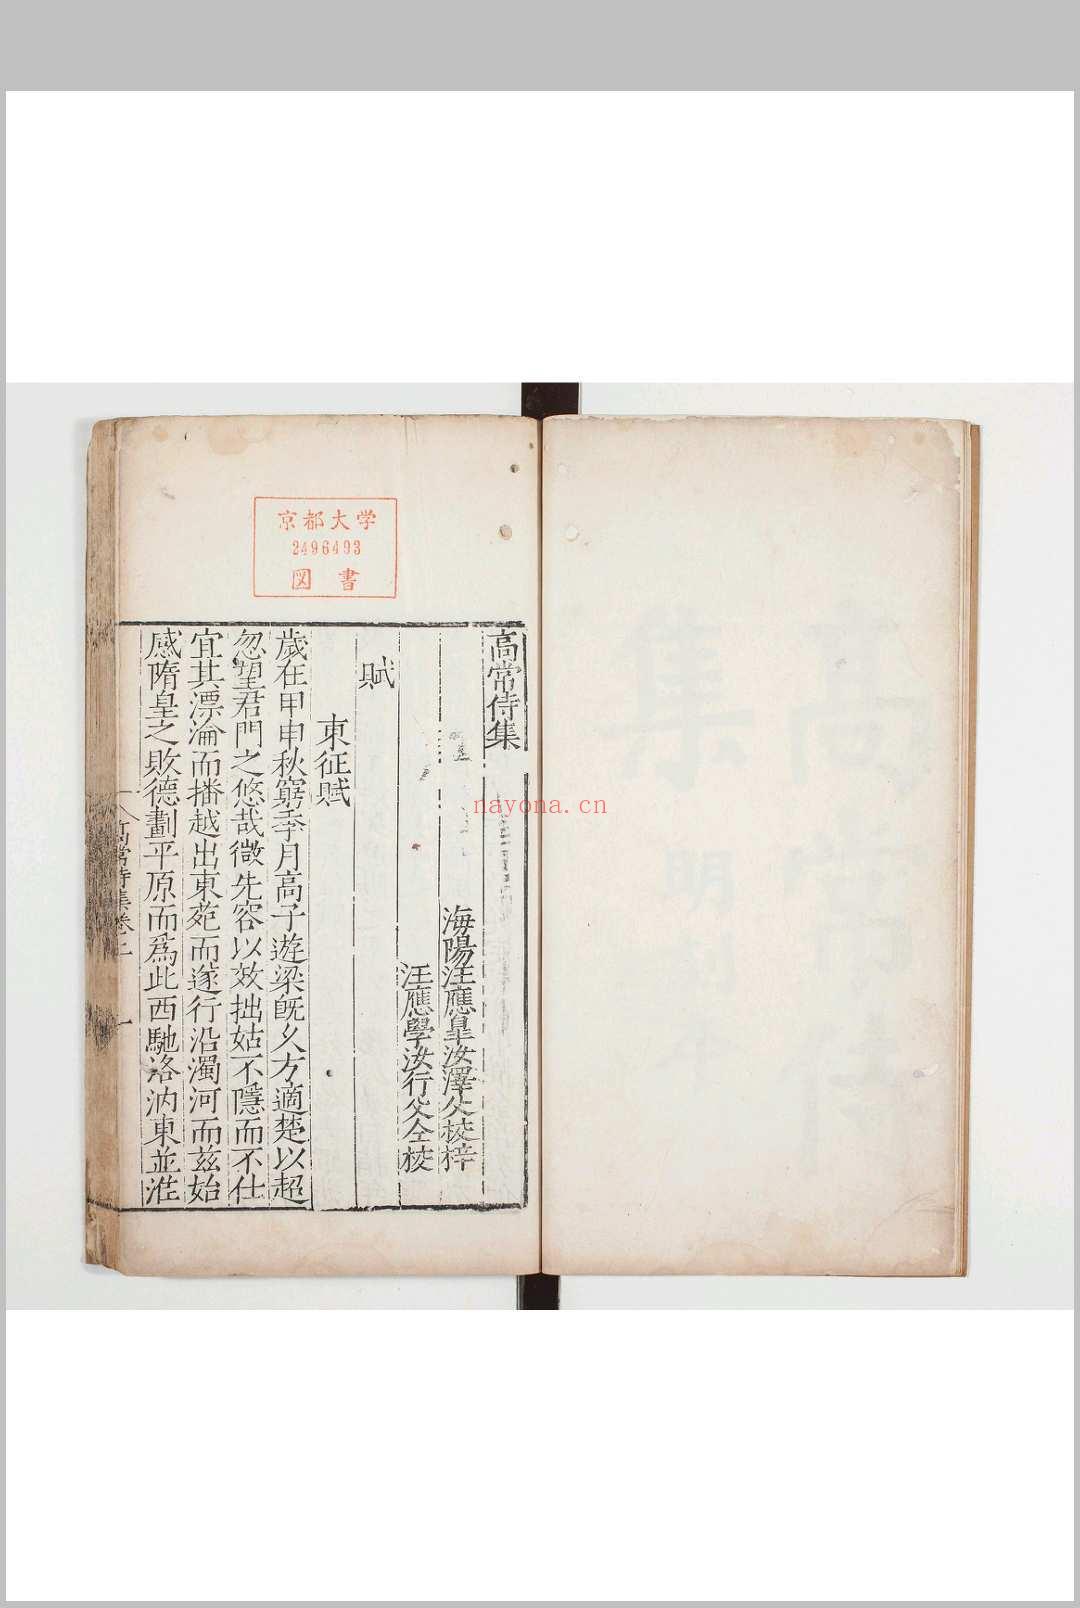 京都大学
2496493
図書
高常侍集
海陽汪應臯汝澤父校梓
汪應學汝行父仝校
賦
東征賦
歲在甲申秋窮季月高子遊梁旣久方適楚以超
忽望君門之悠哉微先容以效拙姑不隱而不仕
宜其漂淪而播越出東苑而遂行沿濁河而兹始
感隋皇之敗德劃平原而爲此西馳洛汭東並淮
nayona.cn